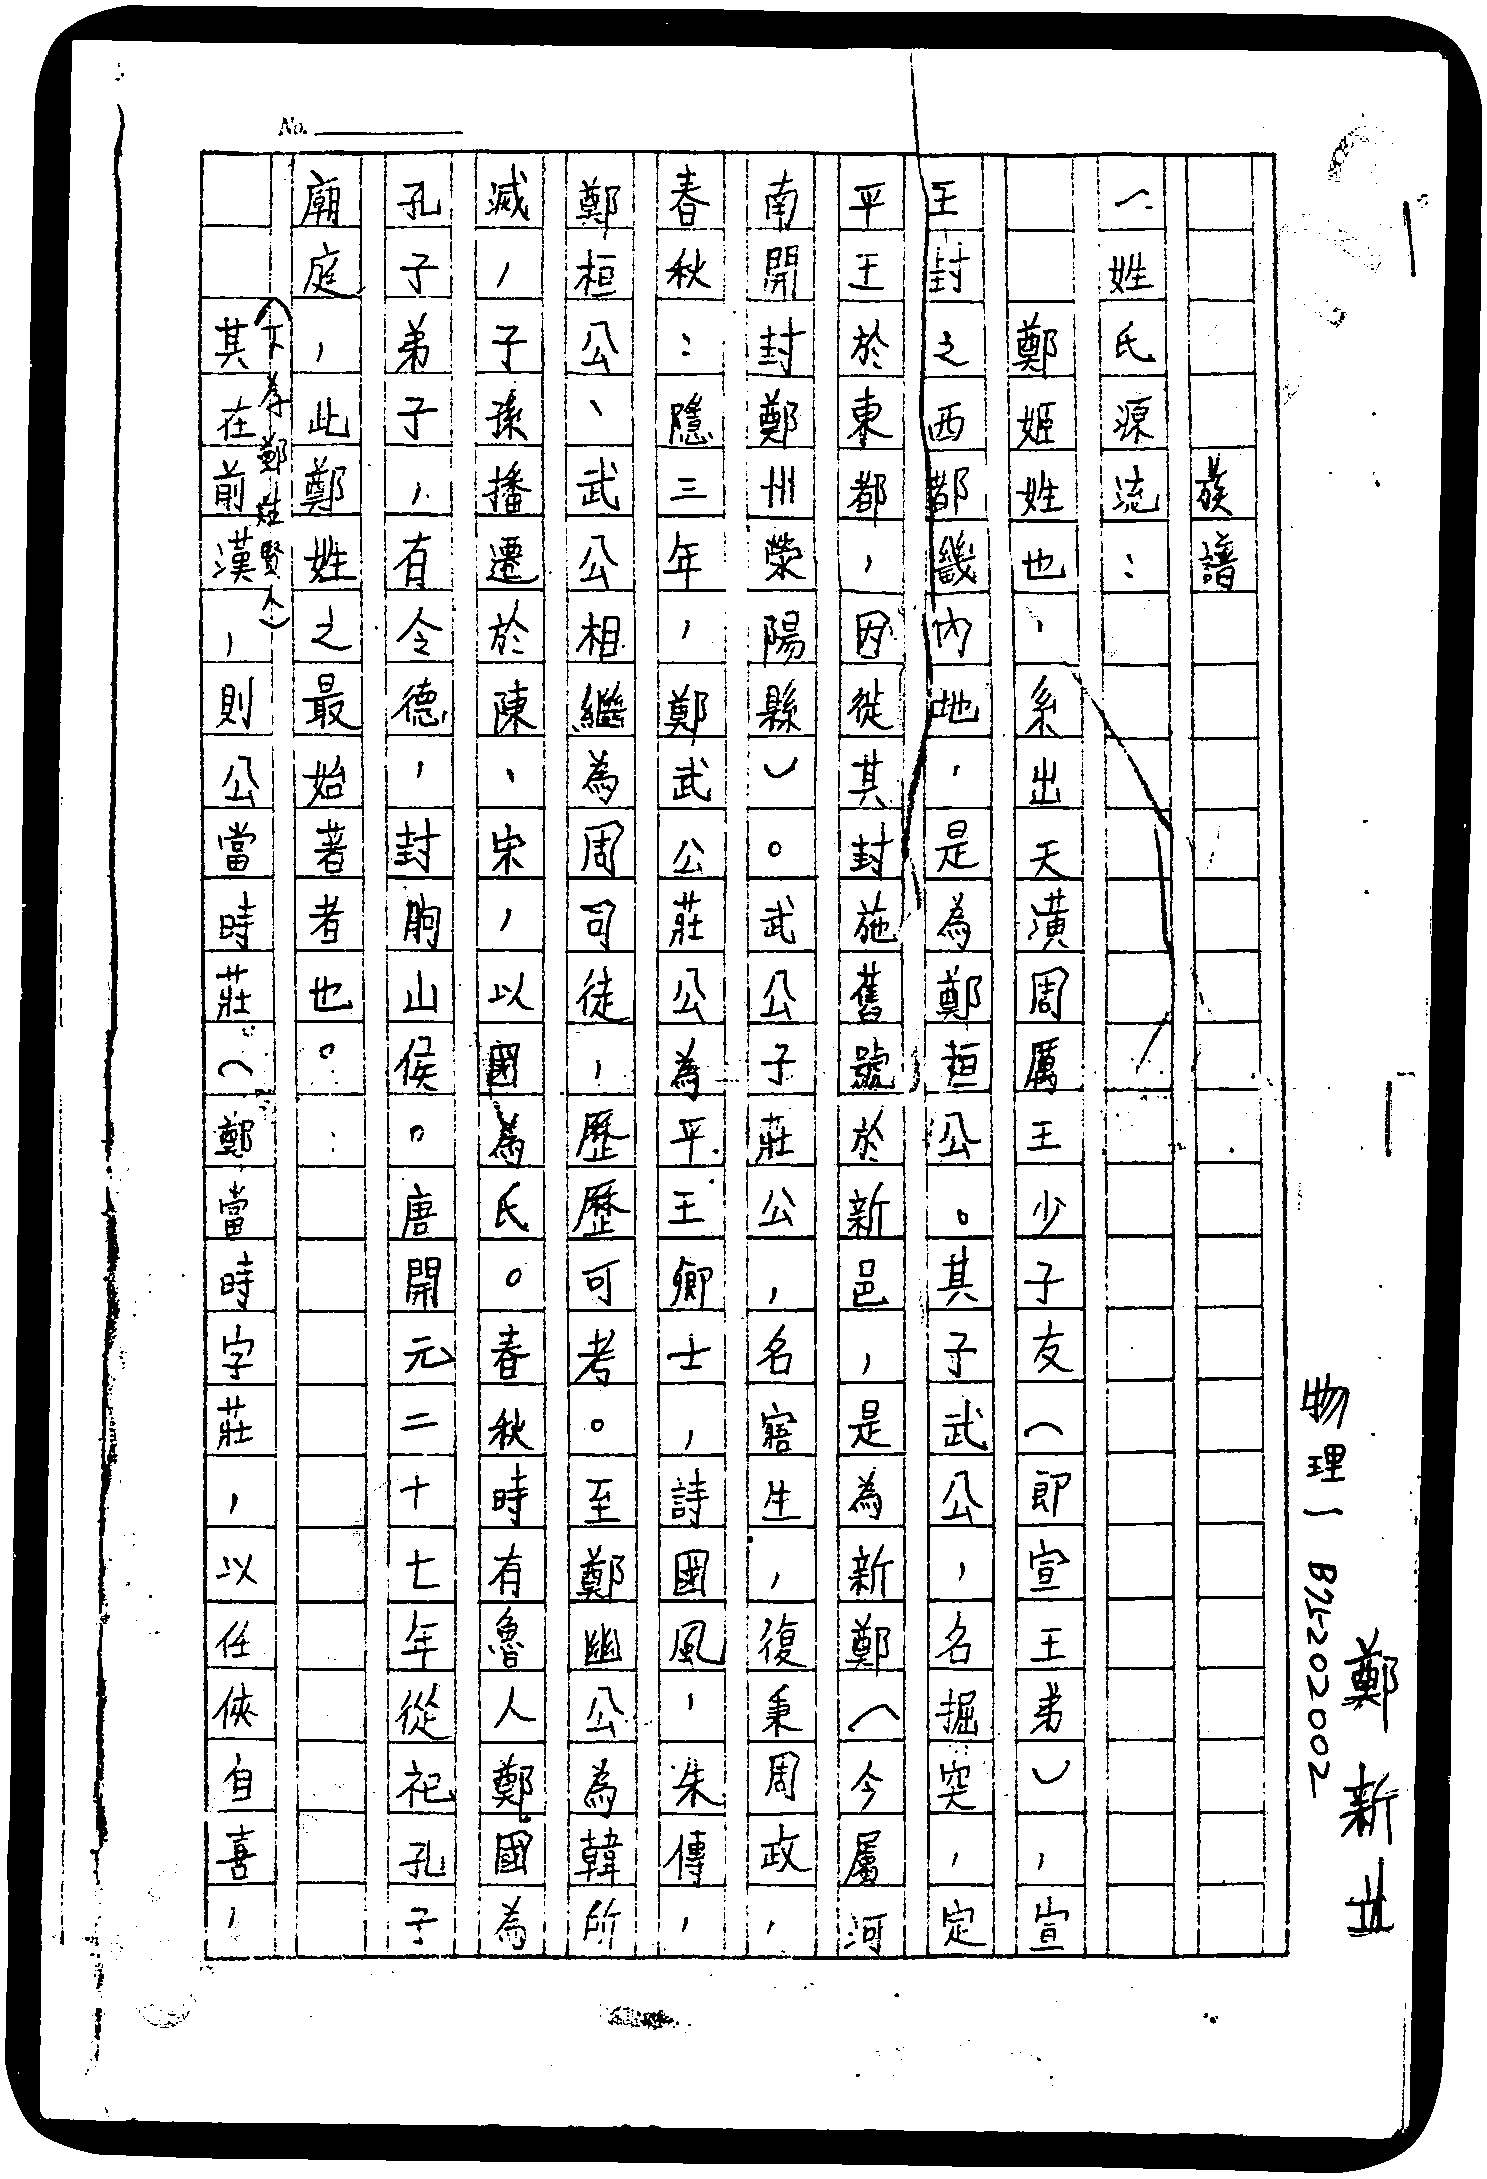 物理一 B75202002
鄭新址
No.
族譜
一、姓氏源流：
鄭姬姓也，系出天潢周厲王少子友（即宣王弟），宣
王封之西都畿內地，是為鄭桓公。其子武公，名掘突，定
平王於東都，因徙其封施舊號於新邑，是為新鄭（今屬河
南開封鄭州滎陽縣）。武公子莊公，名寤生，復秉周政，
春秋：隱三年，鄭武公莊公為平王卿士，詩國風，朱傳，
鄭桓公、武公相繼為周司徒，歷歷可考。至鄭幽公為韓所
滅，子孫播遷於陳、宋，以國為氏。春秋時有魯人鄭國為
孔子弟子，有令德，封朐山侯。唐開元二十七年從祀孔子
廟庭，此鄭姓之最始著者也。
（下為鄭莊賢人）
其在前漢，則公當時莊（鄭當時字莊，以任俠自喜，